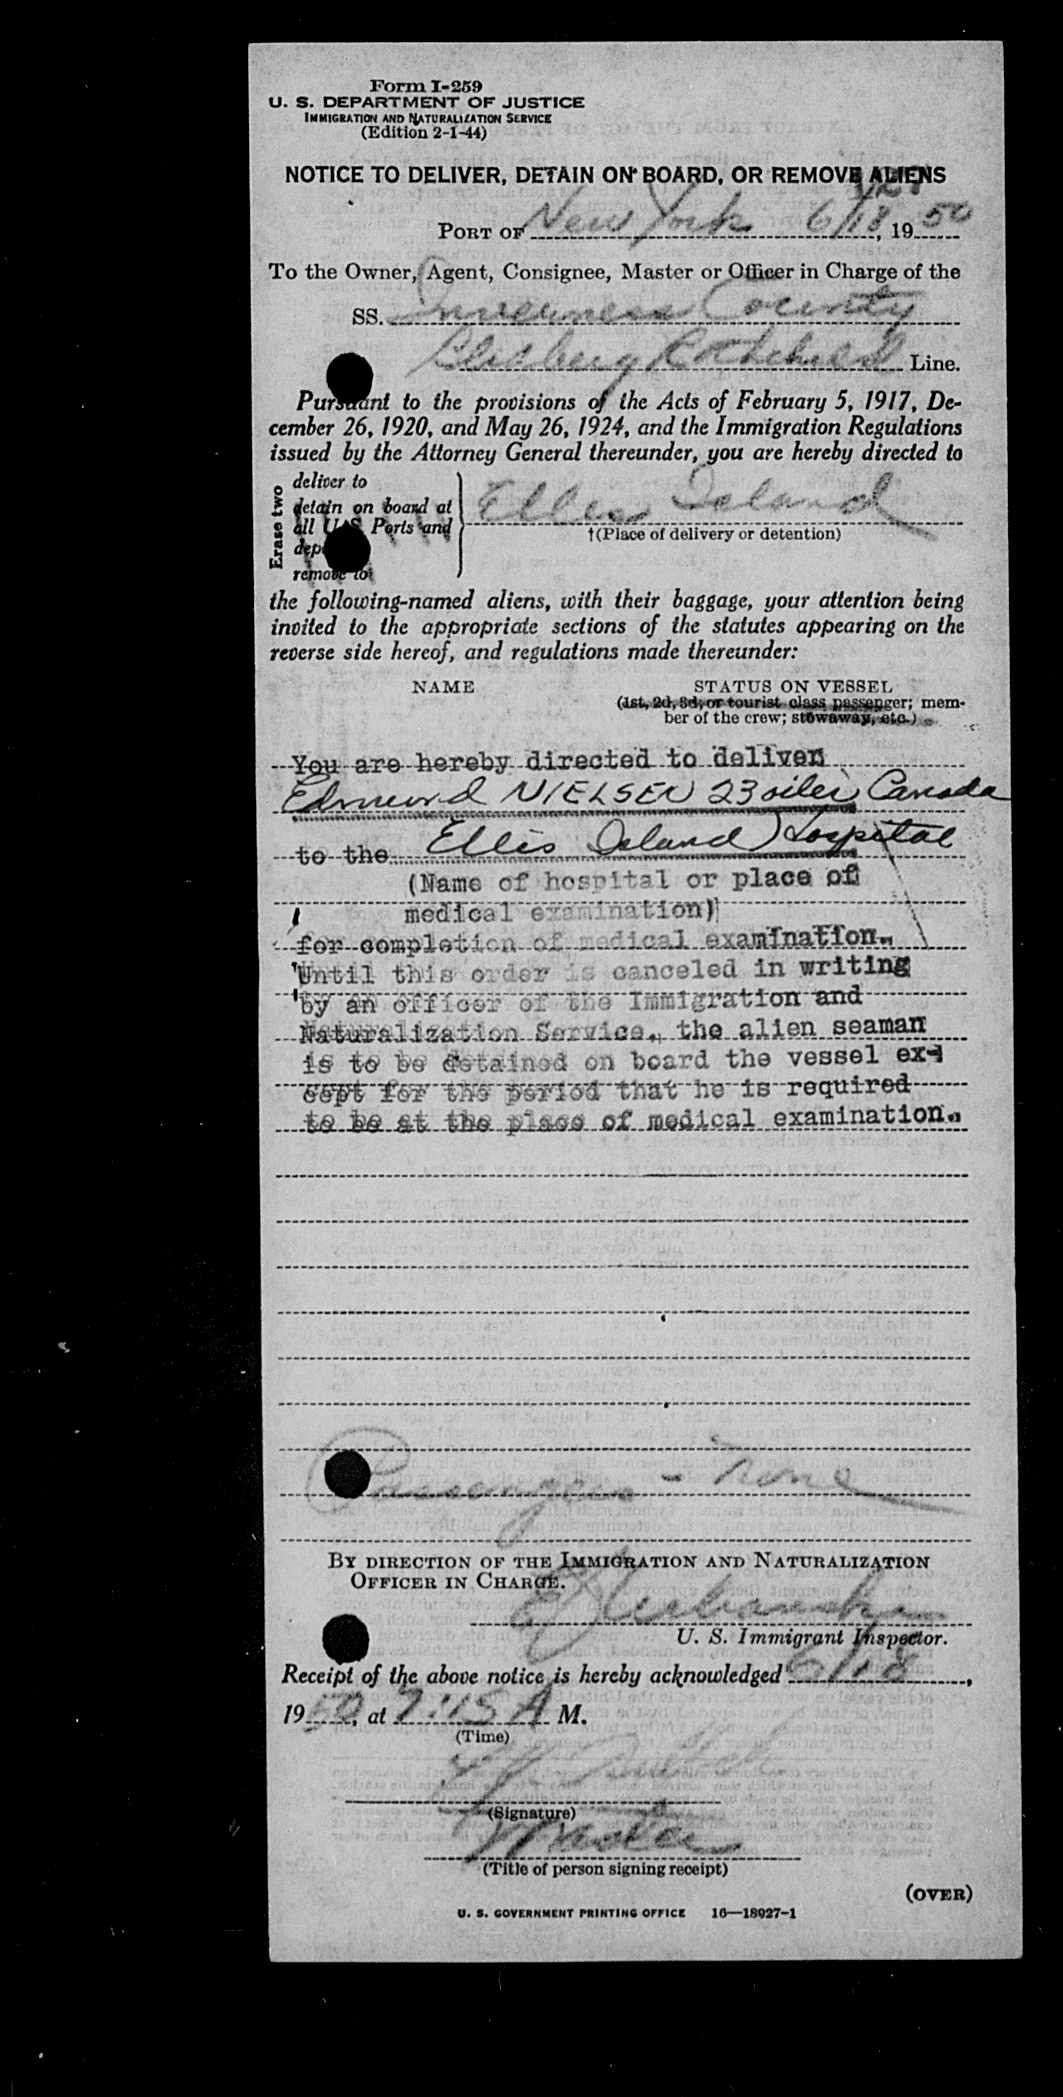 Form I-259
U. S. DEPARTMENT OF JUSTICE
IMMIGRATION AND NATURALIZATION SERVICE
(Edition 2-1-44)
NOTICE TO DELIVER, DETAIN ON BOARD, OR REMOVE ALIENS
PORT OF New York 6/18, 1950
To the Owner, Agent, Consignee, Master or Officer in Charge of the
SS. Inverness County
Line.
Pursuant to the provisions of the Acts of February 5, 1917, De-
cember 26, 1920, and May 26, 1924, and the Immigration Regulations
issued by the Attorney General thereunder, you are hereby directed to
Erase two
deliver to
detain on board at
all U. S. Ports and
remove to
Ellis Island
†(Place of delivery or detention)
the following-named aliens, with their baggage, your attention being
invited to the appropriate sections of the statutes appearing on the
reverse side hereof, and regulations made thereunder:
NAME STATUS ON VESSEL
(1st, 2d, 3d, or tourist class passenger; mem-
ber of the crew; stowaway, etc.)
You are hereby directed to deliver
Edmund NIELSEN 23 oiler Canada
to the Ellis Island Hospital
(Name of hospital or place of
medical examination)
for completion of medical examination.
Until this order is canceled in writing
by an officer of the Immigration and
Naturalization Service, the alien seaman
is to be detained on board the vessel ex-
cept for the period that he is required
to be at the place of medical examination.
Passengers - None
BY DIRECTION OF THE IMMIGRATION AND NATURALIZATION
OFFICER IN CHARGE.
U. S. Immigrant Inspector.
Receipt of the above notice is hereby acknowledged 6/18,
1950, at 7:45 A M.
(Time)
(Signature)
Master
(Title of person signing receipt)
(OVER)
U. S. GOVERNMENT PRINTING OFFICE 16—18927-1